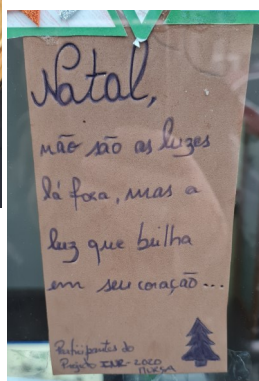 Natal,
não são as luzes
lá fora, mas a
luz que brilha
em seu coração...
Participantes do
Projeto - 2020